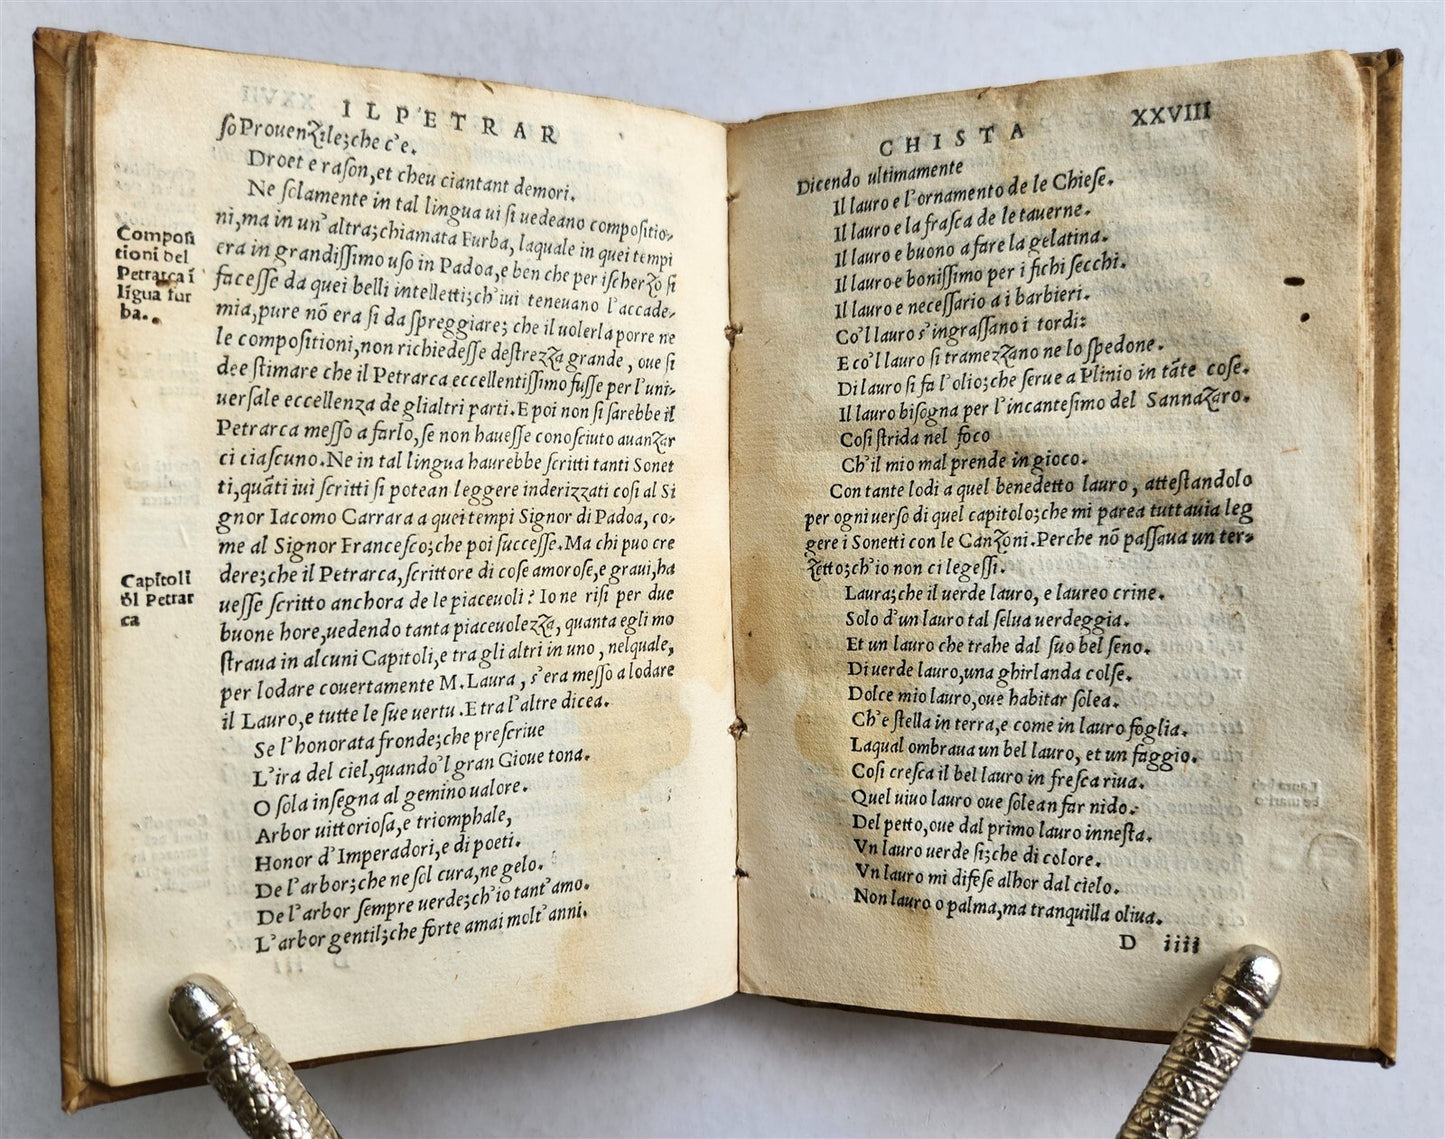 IL PETRAR
so Prouenzile; che c'e.
Droet e rason, et cheu ciantant demori.
Ne solamente in tal lingua ui si uedeano compositio-
ni, ma in un'altra; chiamata Furba, laquale in quei tempi
era in grandissimo uso in Padoa, e ben che per ischerzo si
facesse da quei belli intelletti; ch'iui teneuano l'accade-
mia, pure nõ era si da spreggiare; che il uolerla porre ne
le compositioni, non richiedesse destrezza grande, oue si
dee stimare che il Petrarca eccellentissimo fusse per l'uni-
uersale eccellenza de gli altri parti. E poi non si sarebbe il
Petrarca messo a farlo, se non hauesse conosciuto auanzar
ci ciascuno. Ne in tal lingua haurebbe scritti tanti Sonet
ti, quãti iui scritti si potean leggere inderizzati cosi al Si
gnor Iacomo Carrara a quei tempi Signor di Padoa, co-
me al Signor Francesco; che poi successe. Ma chi puo cre
dere; che il Petrarca, scrittore di cose amorose, e graui, ha
uesse scritto anchora de le piaceuoli? Io ne risi per due
buone hore, uedendo tanta piaceuolezza, quanta egli mo
straua in alcuni Capitoli, e tra gli altri in uno, nelquale,
per lodare couertamente M. Laura, s'era messo a lodare
il Lauro, e tutte le sue uertu. E tra l'altre dicea.
Se l'honorata fronde; che prescriue
L'ira del ciel, quando'l gran Gioue tona.
O sola insegna al gemino ualore.
Arbor uittoriosa, e triomphale,
Honor d'Imperadori, e di poeti.
De l'arbor; che ne sol cura, ne gelo.
De l'arbor sempre uerde; ch'io tant'amo.
L'arbor gentil; che forte amai molt'anni.
Composi
tioni del
Petrarca ĩ
lĩgua fur
ba.
Capitoli
dl Petrar
ca
CHISTA XXVIII
Dicendo ultimamente
Il lauro e l'ornamento de le Chiese.
Il lauro e la frasca de le tauerne.
Il lauro e buono a fare la gelatina.
Il lauro e bonissimo per i fichi secchi.
Il lauro e necessario a i barbieri.
Co'l lauro s'ingrassano i tordi:
E co'l lauro si tramezzano ne lo spedone.
Di lauro si fa l'olio; che serue a Plinio in tãte cose.
Il lauro bisogna per l'incantesimo del Sannazaro.
Cosi strida nel foco
Ch'il mio mal prende in gioco.
Con tante lodi a quel benedetto lauro, attestandolo
per ogni uerso di quel capitolo; che mi parea tuttauia leg
gere i Sonetti con le Canzoni. Perche nõ passaua un ter-
zetto; ch'io non ci legessi.
Laura; che il uerde lauro, e laureo crine.
Solo d'un lauro tal selua uerdeggia.
Et un lauro che trahe dal suo bel seno.
Di uerde lauro, una ghirlanda colse.
Dolce mio lauro, oue habitar solea.
Ch'e stella in terra, e come in lauro foglia.
Laqual ombraua un bel lauro, et un faggio.
Cosi cresca il bel lauro in fresca riua.
Quel uiuo lauro oue solean far nido.
Del petto, oue dal primo lauro innesta.
Vn lauro uerde si; che di colore.
Vn lauro mi difese alhor dal cielo.
Non lauro o palma, ma tranquilla oliua.
D iiii